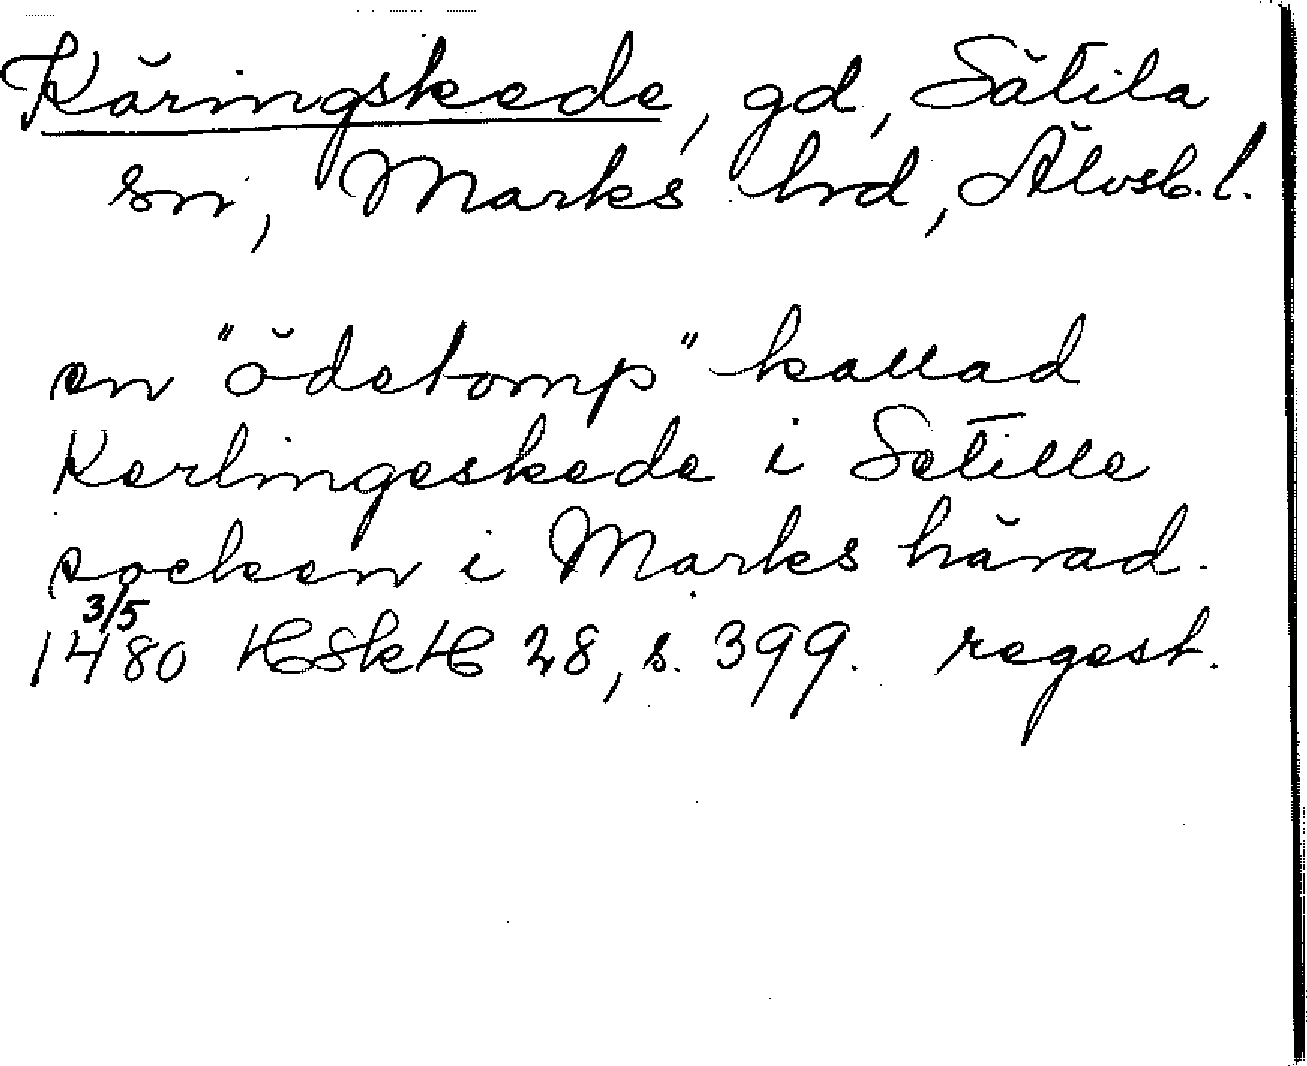 Käringskede, gd, Sätila
sn, Marks hrd, Älvsb. l.
en "ödetomp" kallad
Kerlingeskede i Setille
socken i Marks härad.
3/5
1480 HSkH 28, s. 399. regest.